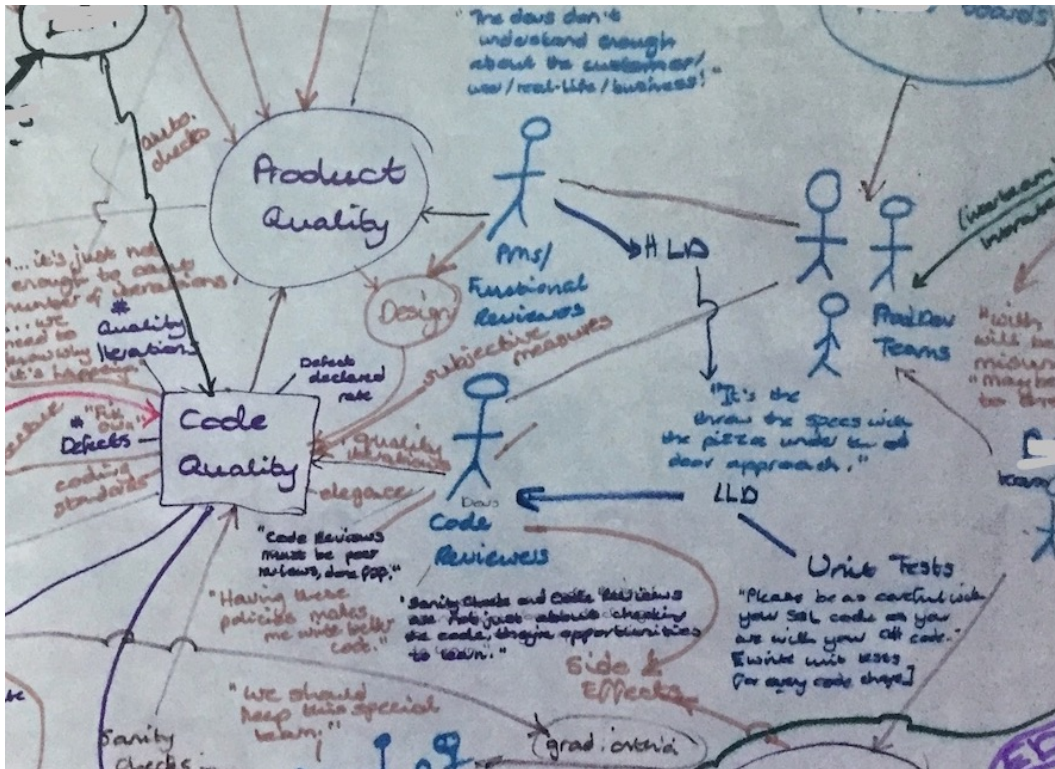 boards
"The devs don't
understand enough
about the customer/
user/real-life/business!"
auto.
checks
Product
Quality
PMs/
Functional
Reviewers
HLD
Design
ProdDev
Teams
"...it's just not
enough to count
number of iterations
...we
need to
know why
it's happening"
#
Quality
Iterations
Defect
declared
rate
subjective
measures
"With
will be
"maybe
to
"It's the
throw the specs with
the pizzas under the
door approach."
#
Defects
coding
standards
Code
Quality
quality
iterations
elegance
Devs
Code
Reviewers
LLD
Unit Tests
"Code Reviews
must be peer
reviews, done
"Having these
policies makes
me write better
code."
"Sanity Checks and Code Reviews
are not just about checking
the code, they're opportunities
to learn."
"Please be as careful with
your SQL code as you
are with your C# code."
[write unit tests
for every code change]
Side
Effects
"We should
keep this special
team!"
Sanity
checks
grad.criteria